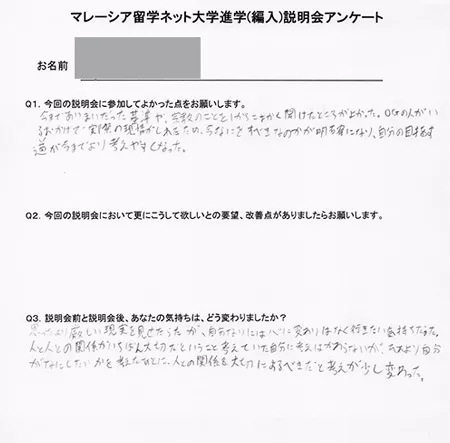 マレーシア留学ネット大学進学(編入)説明会アンケート
お名前
Q1．今回の説明会に参加してよかった点をお願いします。
今まであいまいだった基準や、宗教のことを1からこまかく聞けたところがよかった。OGの人がい
るおかげで実際の現場がしれるため、今なにをすべきなのかが明確になり、自分の目指す
道が今までより考えやすくなった。
Q2．今回の説明会において更にこうして欲しいとの要望、改善点がありましたらお願いします。
Q3．説明会前と説明会後、あなたの気持ちは、どう変わりましたか？
思ったより厳しい現実を見せたられたが、自分なりには変わりはなく行きたい気持ちだった。
人と人との関係がいちばん大切だということ考えていた自分に考えはかわらないが、それより自分
がなにしたいかを考えたひとに、人との関係を大切にするべきだと考えが少し変わった。